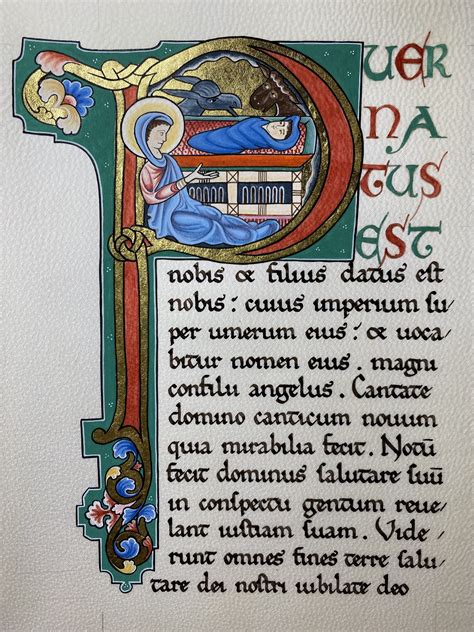 PUER
NA
TUS
EST
nobis & filius datus est
nobis: cuius imperium su
per umerum eius: & uoca
bitur nomen eius. magni
conſilii angelus. Cantate
domino canticum nouum
quia mirabilia fecit. Notū
fecit dominus salutare suū
in conſpectu gentium reue
lant iustiam suam. Vide
runt omnes fines terre salu
tare dei nostri iubilate deo